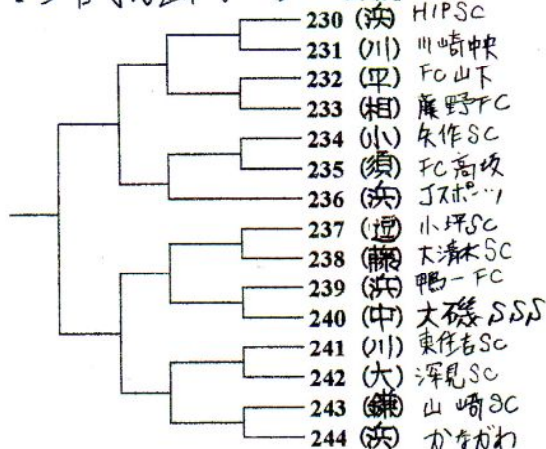 230 (浜) HIP SC
231 (川) 川崎中央
232 (平) FC山下
233 (相) 藤野FC
234 (小) 矢作SC
235 (須) FC高坂
236 (浜) Jスポーツ
237 (逗) 小坪SC
238 (藤) 大清水SC
239 (浜) 鴨一FC
240 (中) 大磯SSS
241 (川) 東住吉SC
242 (大) 深見SC
243 (鎌) 山崎SC
244 (浜) かながわ